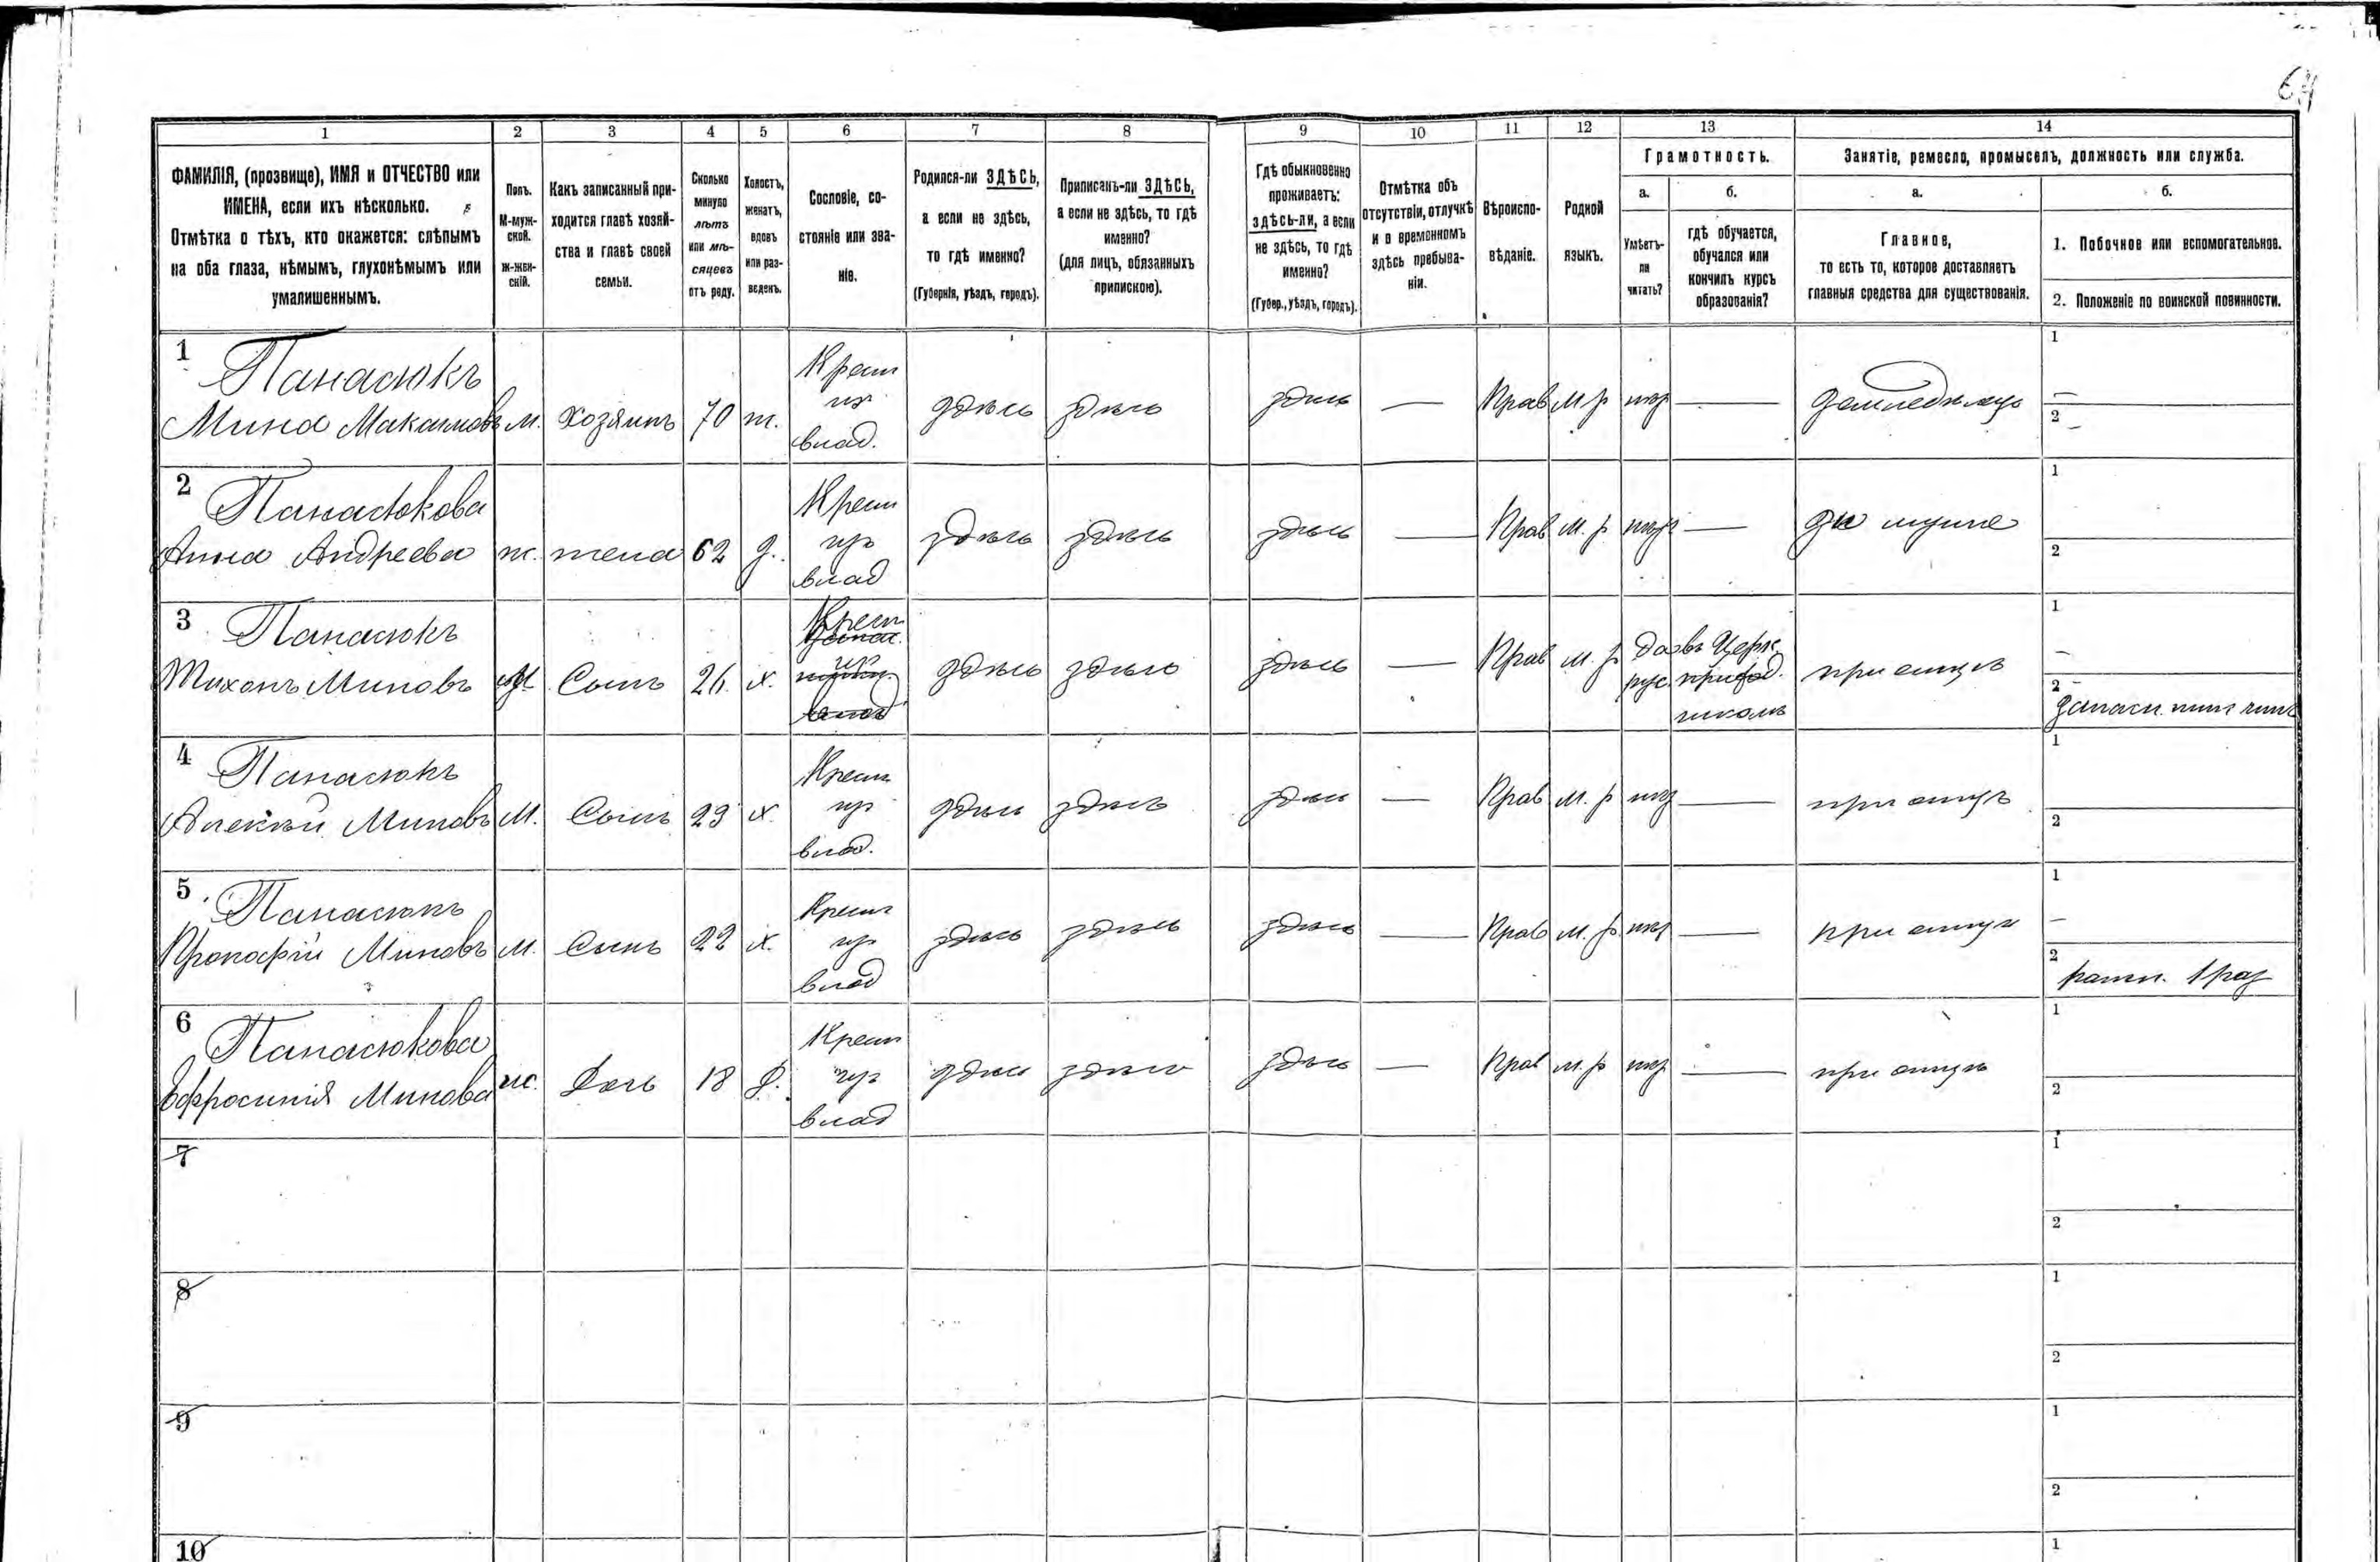 64
1 2 3 4 5 6 7 8 9 10 11 12 13 14
ФАМИЛІЯ, (прозвище), ИМЯ и ОТЧЕСТВО или
ИМЕНА, если ихъ нѣсколько.
Отмѣтка о тѣхъ, кто окажется: слѣпымъ
на оба глаза, нѣмымъ, глухонѣмымъ или
умалишеннымъ.
Полъ.
М-муж-
ской.
Ж-жен-
скій.
Какъ записанный при-
ходится главѣ хозяй-
ства и главѣ своей
семьи.
Сколько
минуло
лѣтъ
или мѣ-
сяцевъ
отъ роду.
Холостъ,
женатъ,
вдовъ
или раз-
веденъ.
Сословіе, со-
стояніе или зва-
ніе.
Родился-ли ЗДѢСЬ,
а если не здѣсь,
то гдѣ именно?
(Губернія, уѣздъ, городъ).
Приписанъ-ли ЗДѢСЬ,
а если не здѣсь, то гдѣ
именно?
(для лицъ, обязанныхъ
припискою).
Гдѣ обыкновенно
проживаетъ:
здѣсь-ли, а если
не здѣсь, то гдѣ
именно?
(Губер., уѣздъ, городъ).
Отмѣтка объ
отсутствіи, отлучкѣ
и о временномъ
здѣсь пребыва-
ніи.
Вѣроиспо-
вѣданіе.
Родной
языкъ.
Грамотность.
а.
Умѣетъ-
ли
читать?
б.
гдѣ обучается,
обучался или
кончилъ курсъ
образованія?
Занятіе, ремесло, промыселъ, должность или служба.
а.
Главное,
то есть то, которое доставляетъ
главныя средства для существованія.
б.
1. Побочное или вспомогательное.
2. Положеніе по воинской повинности.
1 Панасюкъ
Мина Максимовъ м. Хозяинъ 70 ж. Крест из влад. здѣсь здѣсь здѣсь — Прав М р нѣт — Земледѣлецъ 1 — 2 —
2 Панасюкова
Анна Андреева ж. жена 62 з. Крест из влад здѣсь здѣсь здѣсь — Прав м. р нѣт — при мужѣ 1 2
3 Панасюкъ
Тихонъ Миновъ М Сынъ 26 х. Крест из здѣсь здѣсь здѣсь — Прав м. р Да рус. въ Церк. приход. школѣ при отцѣ 1 — 2 запасн. ниж чинъ
4 Панасюкъ
Алексѣй Миновъ М. Сынъ 23 х. Крест из влад. здѣсь здѣсь здѣсь — Прав м. р нѣт — при отцѣ 1 2
5 Панасюкъ
Прокофій Миновъ М. Сынъ 22 х. Крест из влад здѣсь здѣсь здѣсь — Прав м. р нѣт — при отцѣ 1 — 2 ратн. 1 раз
6 Панасюкова
Ефросинія Минова ж. Дочь 18 д. Крест из влад здѣсь здѣсь здѣсь — Прав м. р нѣт — при отцѣ 1 2
7 1 2
8 1 2
9 1 2
10 1